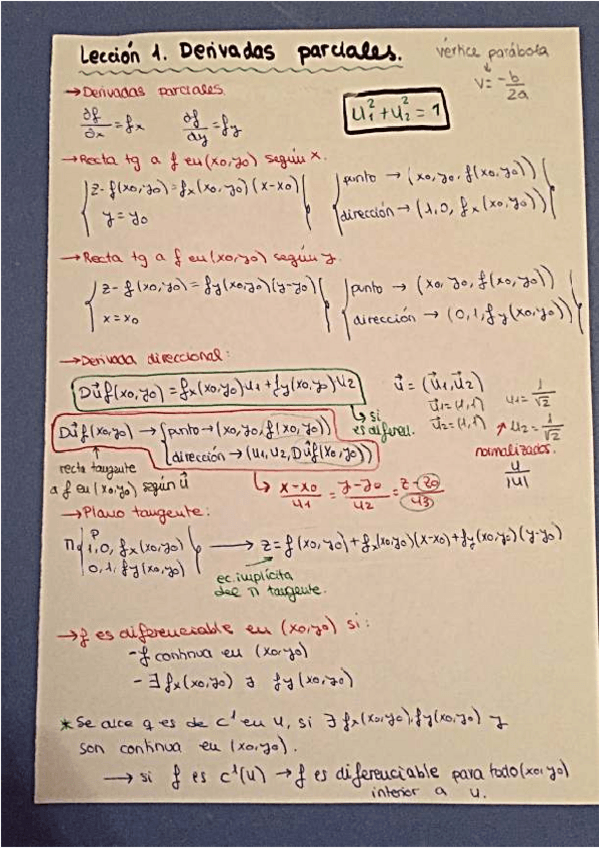 Lección 1. Derivadas parciales.
vértice parábola
↓
V = -b/2a
→ Derivadas parciales.
∂f/∂x = fx   ∂f/∂y = fy
u₁² + u₂² = 1
→ Recta tg a f en (x₀,y₀) según x.
{ z - f(x₀,y₀) = fx(x₀,y₀)(x-x₀)
y = y₀ }
{ punto → (x₀,y₀,f(x₀,y₀))
dirección → (1,0,fx(x₀,y₀)) }
→ Recta tg a f en (x₀,y₀) según y.
{ z - f(x₀,y₀) = fy(x₀,y₀)(y-y₀)
x = x₀ }
{ punto → (x₀,y₀,f(x₀,y₀))
dirección → (0,1,fy(x₀,y₀)) }
→ Derivada direccional:
Dūf(x₀,y₀) = fx(x₀,y₀)u₁ + fy(x₀,y₀)u₂
↳ si
es diferen.
ū = (ū₁,ū₂)
ū₁ = (1,1)
ū₂ = (1,1)
u₁ = 1/√2
↗ u₂ = 1/√2
normalizados.
u/|u|
Dūf(x₀,y₀) → { punto → (x₀,y₀,f(x₀,y₀))
dirección → (u₁,u₂,Dūf(x₀,y₀)) }
↑
recta tangente
a f en (x₀,y₀) según ū
↳ x-x₀/u₁ = y-y₀/u₂ = z-z₀/u₃
→ Plano tangente:
π { P
1,0,fx(x₀,y₀)
0,1,fy(x₀,y₀) } → z = f(x₀,y₀) + fx(x₀,y₀)(x-x₀) + fy(x₀,y₀)(y-y₀)
ec. implícita
del π tangente.
→ f es diferenciable en (x₀,y₀) si:
- f continua en (x₀,y₀)
- ∃ fx(x₀,y₀) ∃ fy(x₀,y₀)
* Se dice q es de c¹ en u, si ∃ fx(x₀,y₀), fy(x₀,y₀) y
son continua en (x₀,y₀).
→ si f es c¹(u) → f es diferenciable para todo (x₀,y₀)
interior a u.